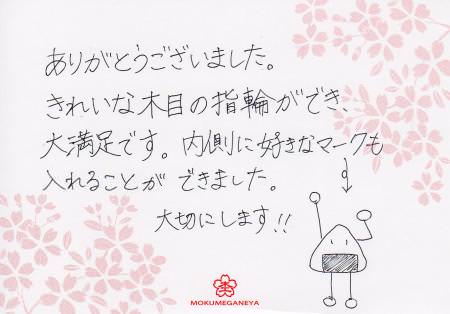 ありがとうございました。
きれいな木目の指輪ができ、
大満足です。内側に好きなマークも
入れることができました。
大切にします!!
MOKUMEGANEYA